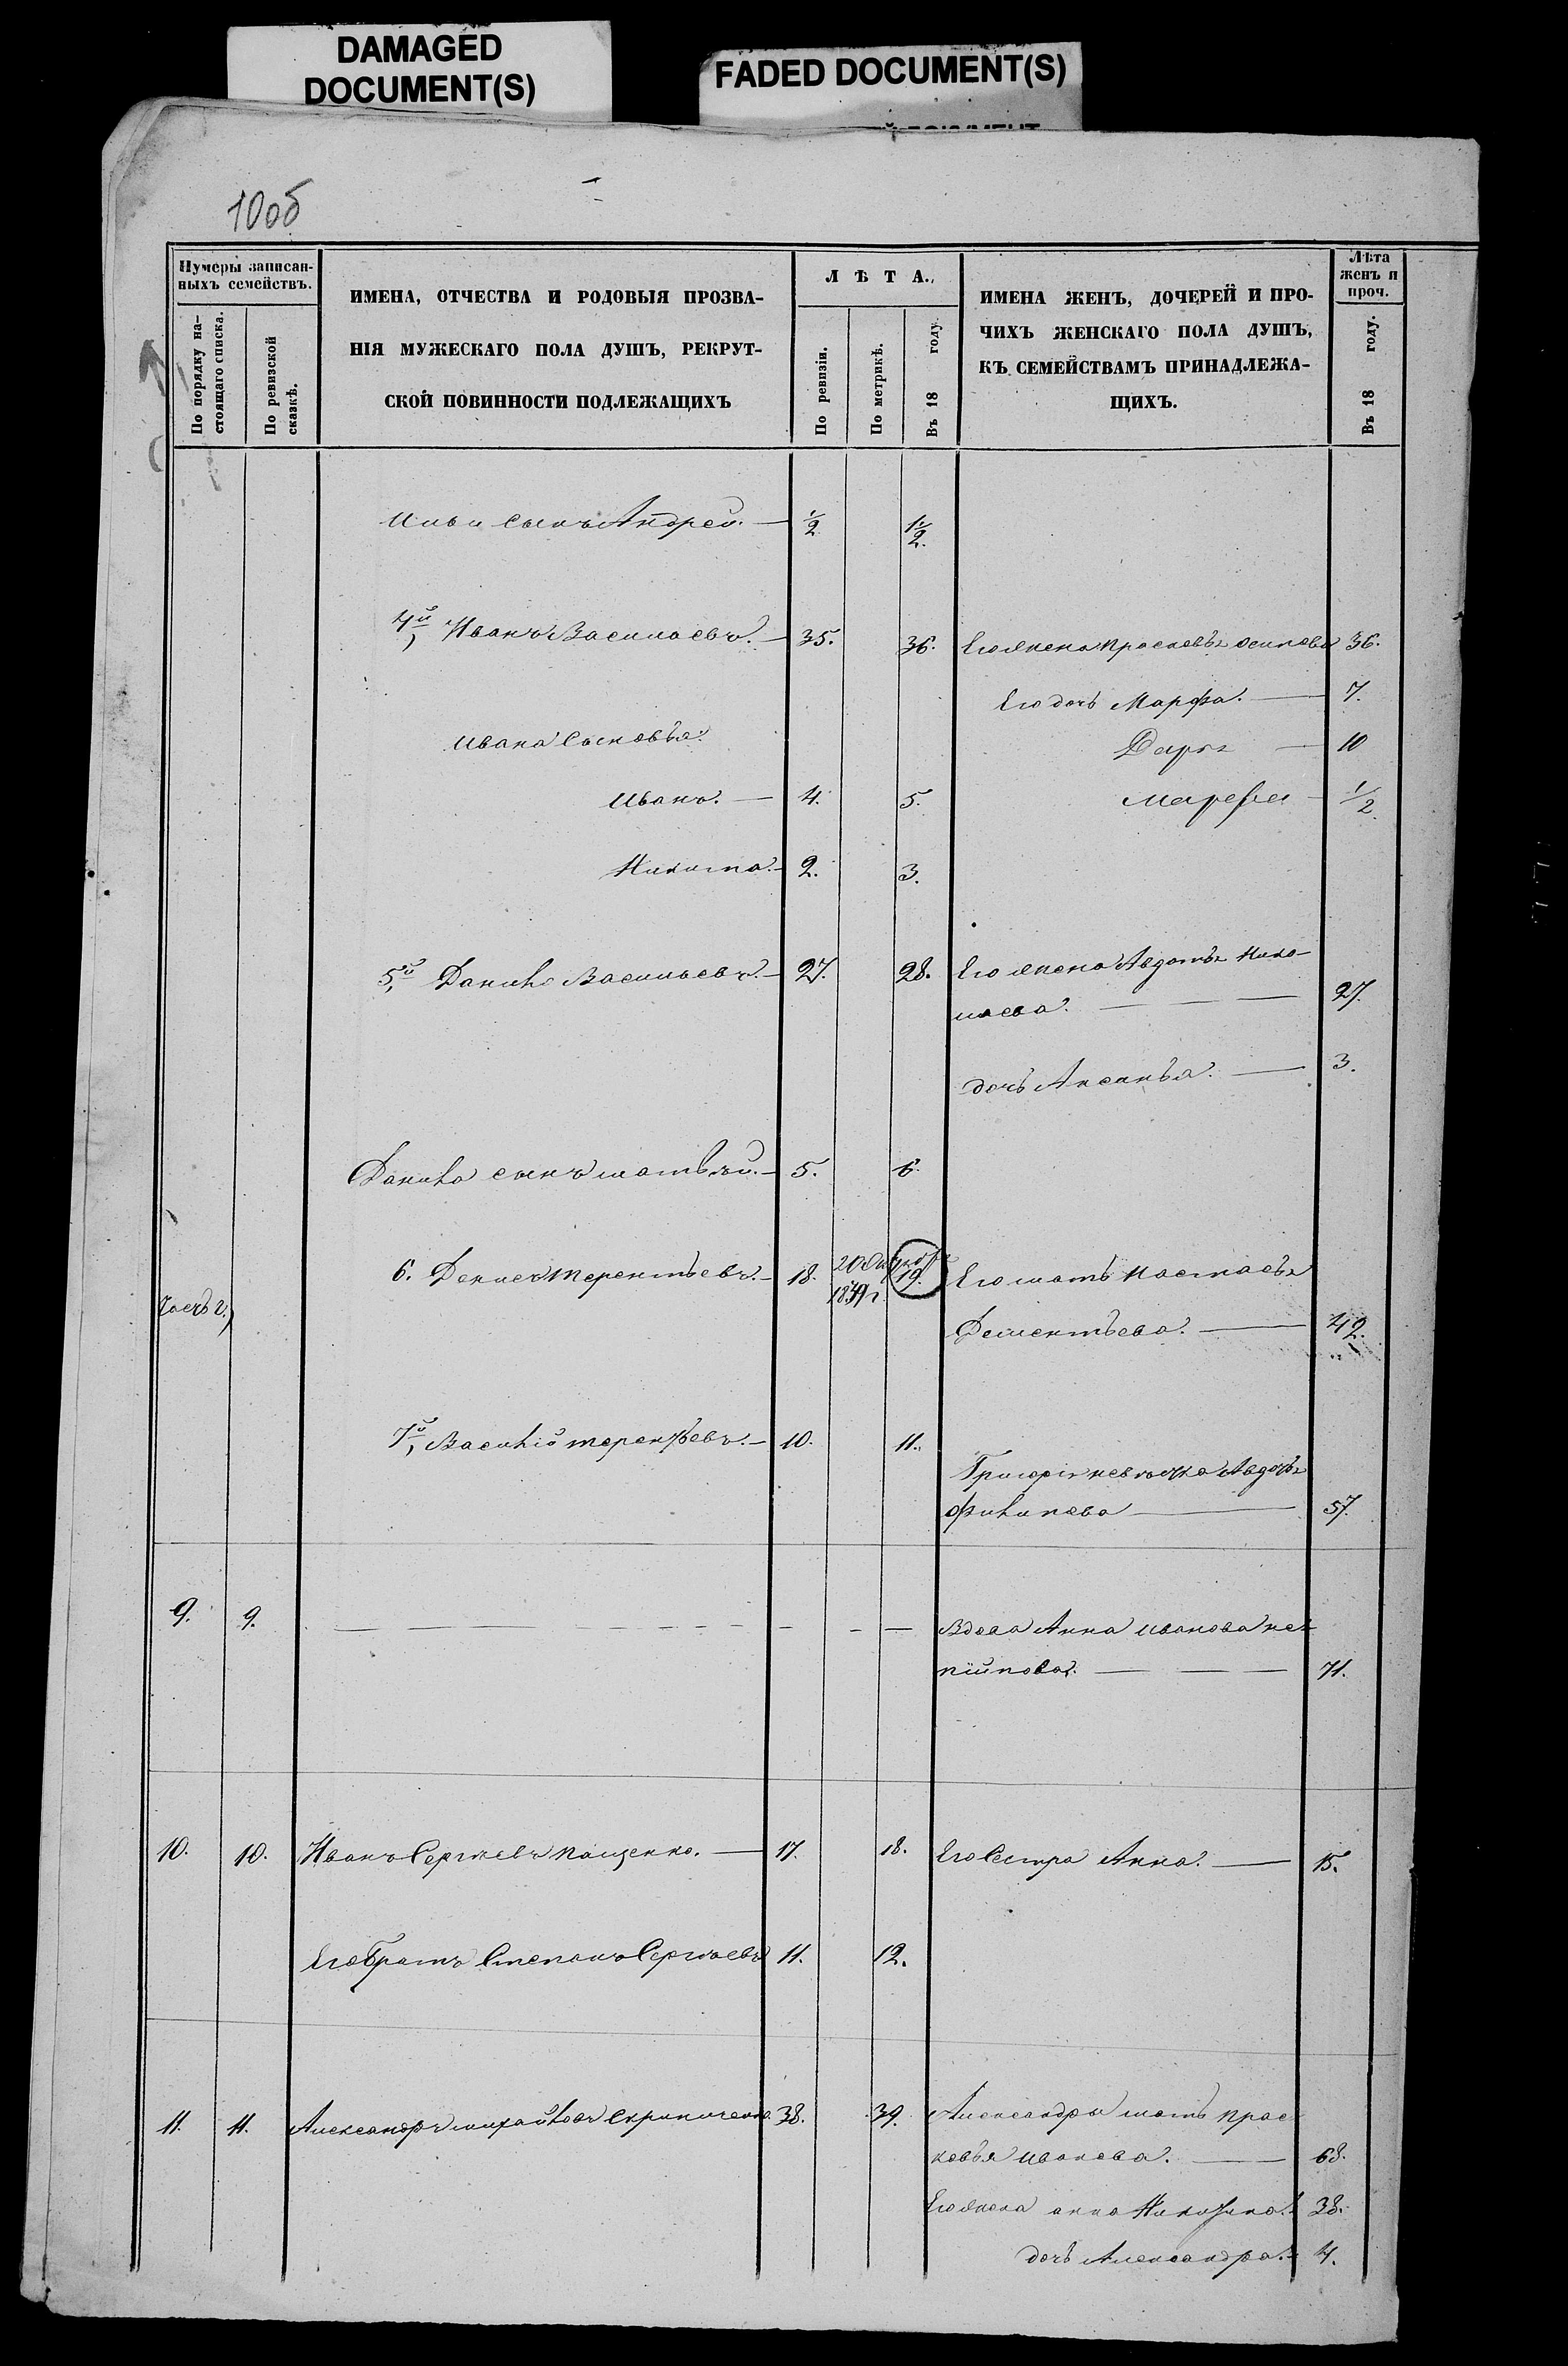 DAMAGED
DOCUMENT(S)
FADED DOCUMENT(S)
10об
Нумеры записан-
ныхъ семействъ.
По порядку на-
стоящаго списка.
По ревизской
сказкѣ.
ИМЕНА, ОТЧЕСТВА И РОДОВЫЯ ПРОЗВА-
НІЯ МУЖЕСКАГО ПОЛА ДУШЪ, РЕКРУТ-
СКОЙ ПОВИННОСТИ ПОДЛЕЖАЩИХЪ
ЛѢТА.
По ревизіи.
По метрикѣ.
Въ 18 году.
ИМЕНА ЖЕНЪ, ДОЧЕРЕЙ И ПРО-
ЧИХЪ ЖЕНСКАГО ПОЛА ДУШЪ,
КЪ СЕМЕЙСТВАМЪ ПРИНАДЛЕЖА-
ЩИХЪ.
Лѣта
женъ и
проч.
Въ 18 году.
Ильи сынъ Андрей. — 1/2 1 1/2.
4й, Иванъ Васильевъ. — 35. 36. Его жена Прасковья Осипова 36.
Его дочь Марфа. — 7.
Ивана сыновья:
Дарья — 10
Иванъ. — 4. 5. Марфа — 1/2
Никита. — 2. 3.
5й, Данило Васильевъ. — 27. 28. Его жена Авдотья Нико-
лаева. — — — 27.
дочь Аксинья. — 3.
Данила сынъ Матвѣй. — 5. 6.
6. Денисъ Терентьевъ. — 18. 20 Октября 1839 г. 19. Его мать Настасья
Дементьева. — 42.
7й, Василій Терентьевъ. — 10. 11.
Григорія невѣстка Авдотья
Филипова — 57.
9. 9. — — — — — — — — — Вдова Анна Иванова
71.
10. 10. Иванъ Сергѣевъ Пащенко. — 17. 18. Его сестра Анна. — 15.
Его братъ Степанъ Сергѣевъ 11. 12.
11. 11. Александръ Михайловъ Скрипиченко. 38. 39. Александры мать Прас-
ковья Иванова. — 68.
Его жена Анна 38.
дочь Александра. 4.